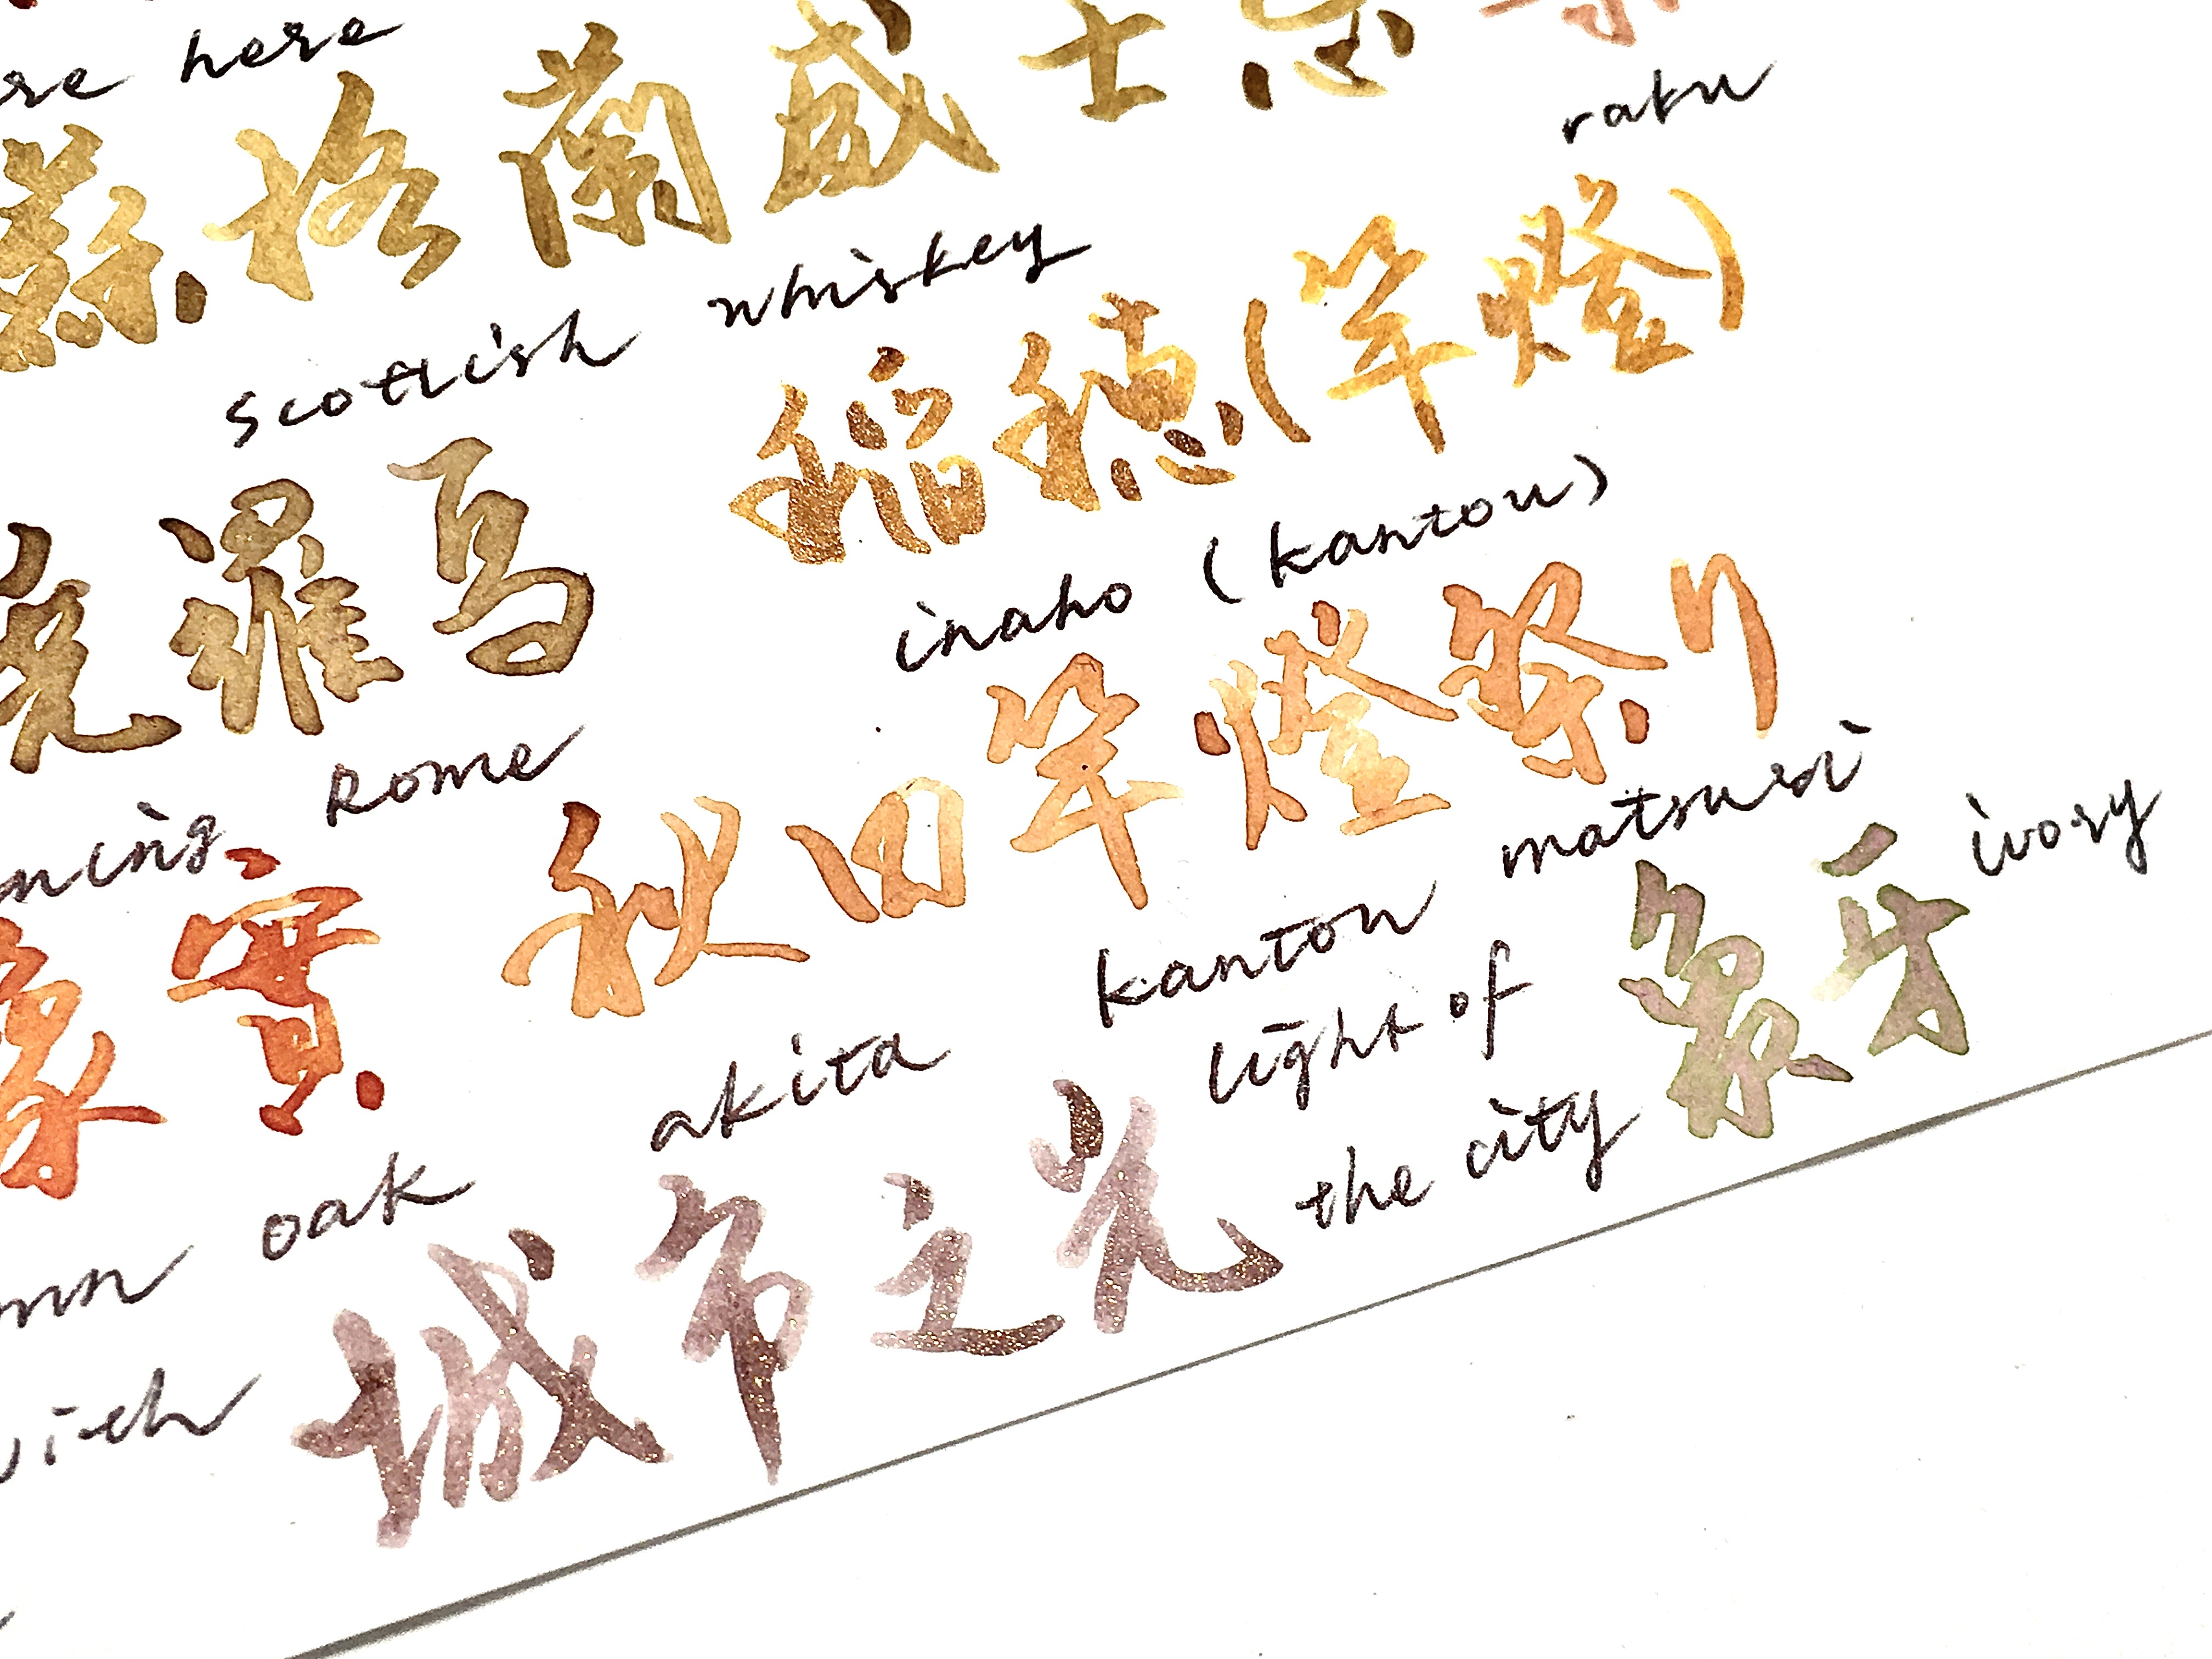 here
蘇格蘭威士忌
raku
scottish whiskey
稻穂(竿燈)
羅馬
inaho (kantou)
Rome
秋田竿燈祭り
akita kanton matsuri
實
象牙 ivory
oak
城市之光
light of
the city